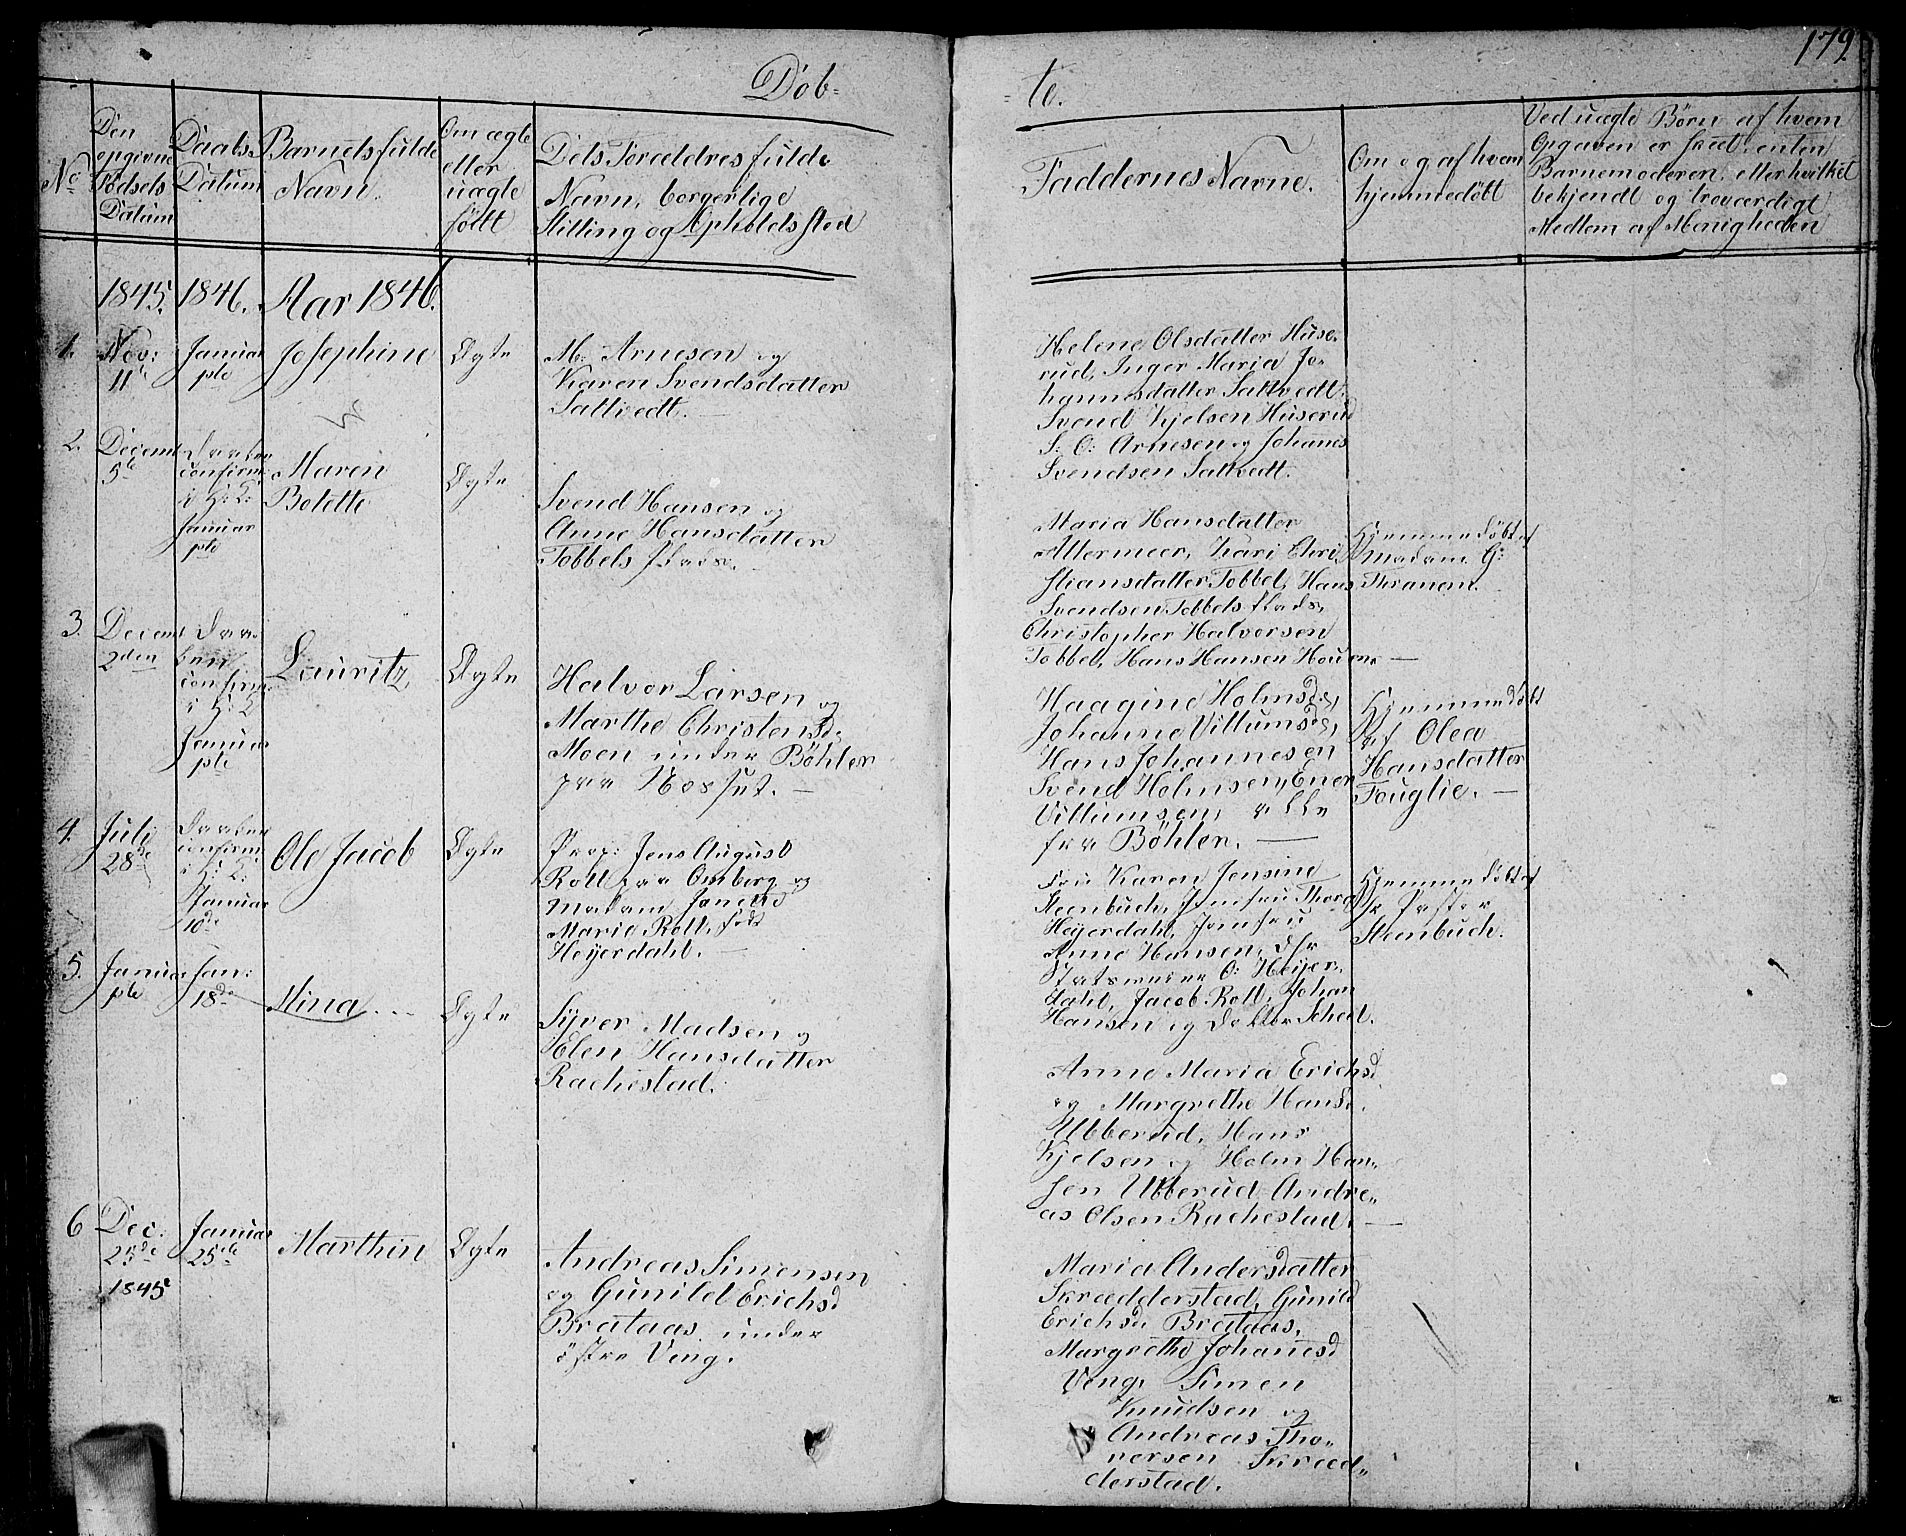 179.
Døb-
-te.
No
Den
opgivne
Fødsels
Datum
Daabs
Datum
Barnets fulde
Navn.
Om ægte
eller
uægte
født
Dets Forældres fulde
Navn, borgerlige
Stilling og Opholdssted
Faddernes Navne.
Om og af hvem
hjemmedøbt
Ved uægte Børn af hvem
Opgaven er skeet, enten
Barnemoderen, eller hvilket
bekjendt og troværdigt
Medlem af Menigheden
1845. 1846. Aar 1846.
1.
Nov:
11te
Januar
1ste
Josephine
Ægte
M. Arnesen og
Karen Svendsdatter
Saltvedt. —
Helene Olsdatter Huse-
rud, Inger Maria Jo-
hannisdatter Saltvedt.
Svend Kjelsen Huserud
S: O: Arnesen og Johanes
Svendsen Saltvedt.
2.
Decemb
5te
Daaben
confirm:
i H: K:
Januar
1ste
Maren
Botette
Ægte
Svend Hansen og
Anne Hansdatter
Tobbels Plads. —
Maria Hansdatter
Altermeer, Kari Chri
stiansdatter Tobbel, Hans
Svendsen Tobbels Plads,
Christopher Halvorsen
Tobbel, Hans Hansen Houen. —
Hjemmedøbt af
Madam G:
Thranem.
3.
Decemb
2den
Daa-
ben
confirm:
i H: K
Januar
1ste
Lauritz
Ægte
Halvor Larsen og
Marthe Christensd.
Moen under Bøhler
paa Nosset. —
Haagine Holmsd.,
Johanne Villumsd.,
Hans Johannesen
Svend Holmsen, Ener
Villumsen, alle
fra Bøhler. —
Hjemmedøbt
af Olea
Hansdatter
Fouglie. —
4.
Juli
28de
Daaben
confirm:
i H: K:
Januar
10de
Ole Jacob
Ægte
Prop: Jens August
Roll paa Omberg og
Madam
Marie Roll, født
Heyerdahl. —
Fru Karen Jensine
Steenbuch, Jomfru Thora
Heyerdahl, Jomfru
Anne Hansen, Dhr
O: Heyer-
dahl, Jacob Roll, Johan
Hansen og Doktor Scheel.
Hjemmedøbt af
Hr Pastor
Steenbuch.
5.
Januar
1ste
Jan:
18de
Stina
Ægte
Syver Madsen og
Elen Hansdatter
Rachestad.
Anne Maria Erichsd
og Margrethe Hansd.
Ubberud, Hans
Kjelsen og Holm Han-
sen Ubberud, Andre-
as Olsen Rachestad. —
6
Dec:
25de
1845
Januar
25de
Marthin
Ægte
Andreas Simensen
og Gunild Erichsd
Brataas under
østre Veng.
Maria Andersdatter
Skrædderstad, Gunild
Erichsd Brataas,
Margrethe Johanesd
Veng, Simen
Knudsen og
Andreas Tho-
resen Skræd-
derstad.